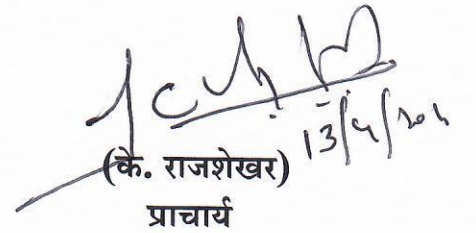 13/4/
(के. राजशेखर)
प्राचार्य